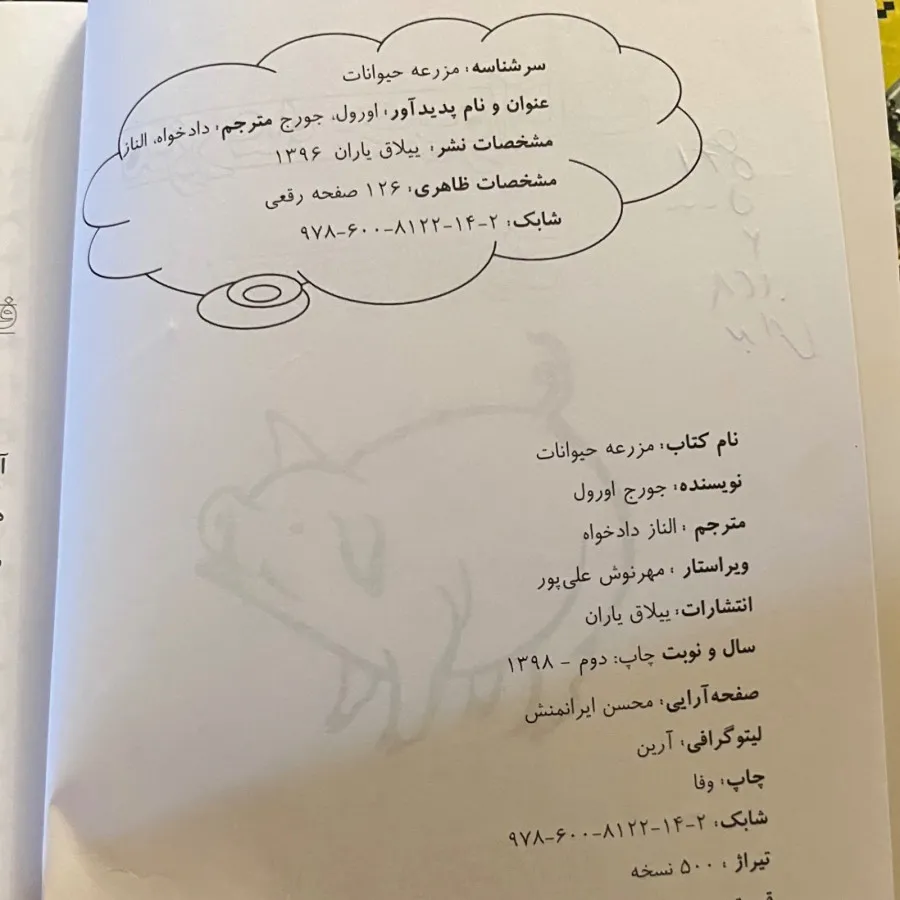 سرشناسه: مزرعه حیوانات
عنوان و نام پدیدآور: اورول، جورج مترجم: دادخواه، الناز
مشخصات نشر: ییلاق یاران ۱۳۹۶
مشخصات ظاهری: ۱۲۶ صفحه رقعی
شابک: ۲-۱۴-۸۱۲۲-۶۰۰-۹۷۸
نام کتاب: مزرعه حیوانات
نویسنده: جورج اورول
مترجم : الناز دادخواه
ویراستار : مهرنوش علی‌پور
انتشارات: ییلاق یاران
سال و نوبت چاپ: دوم - ۱۳۹۸
صفحه‌آرایی: محسن ایرانمنش
لیتوگرافی: آرین
چاپ: وفا
شابک: ۲-۱۴-۸۱۲۲-۶۰۰-۹۷۸
تیراژ : ۵۰۰ نسخه